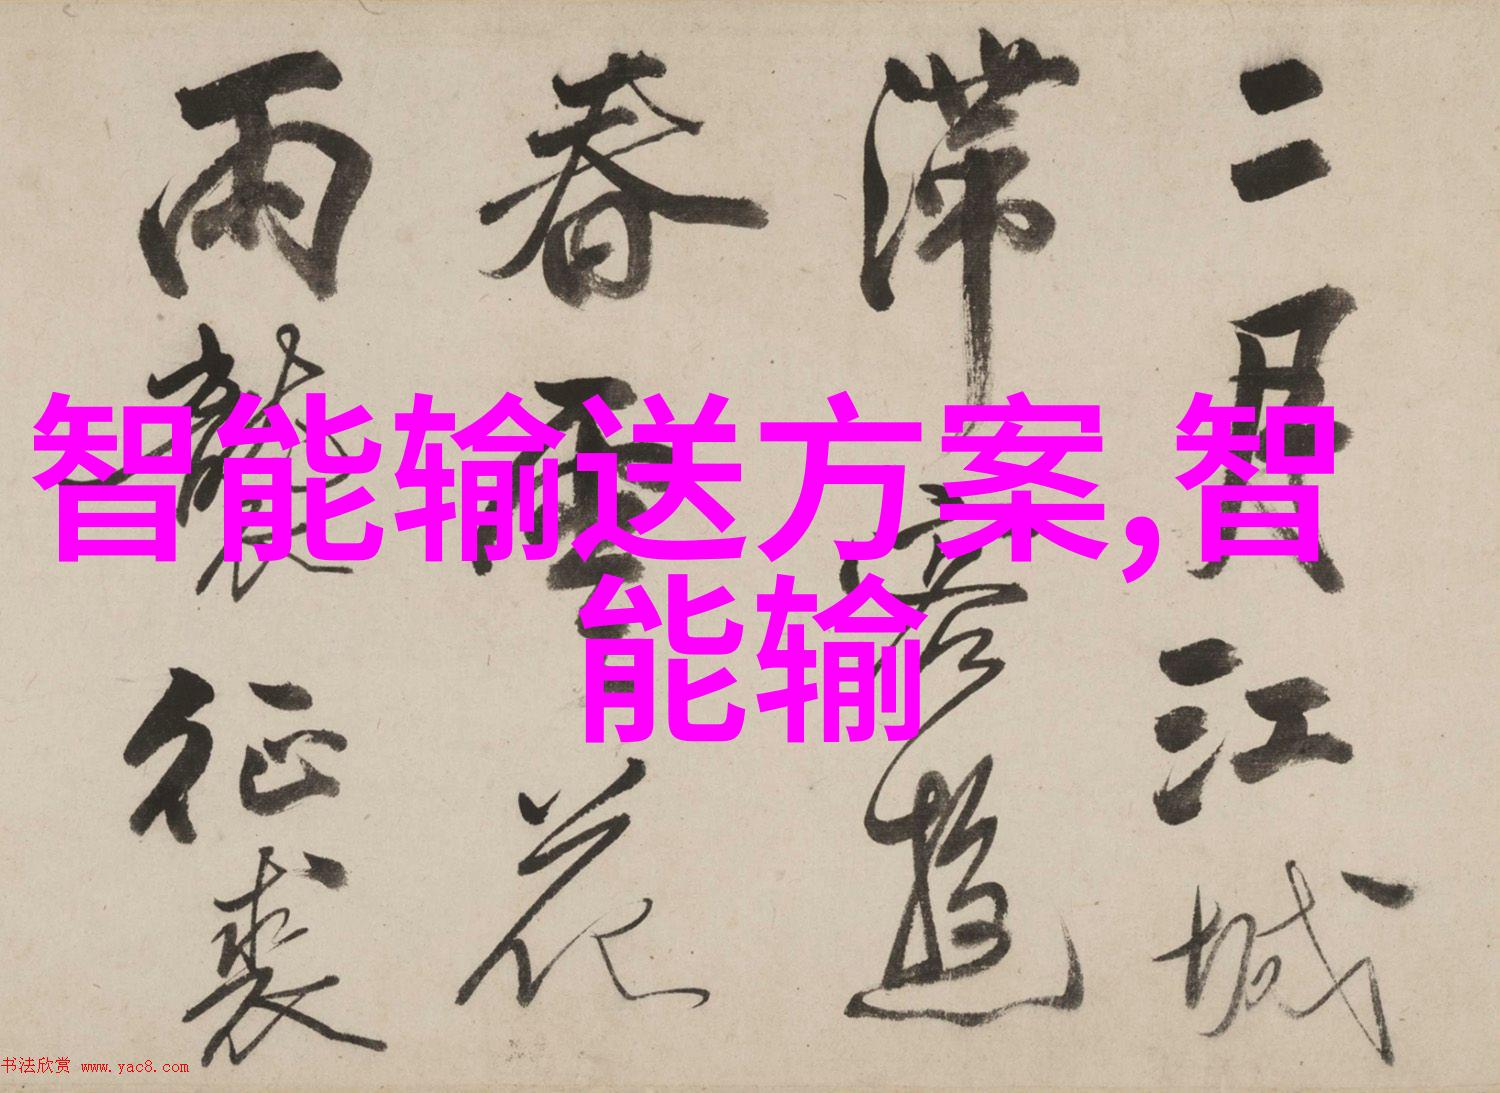 二月江城
滞客遊
春雲花
雨襲征裘
智能输送方案,智
能输
书法欣赏 www.yac8.com